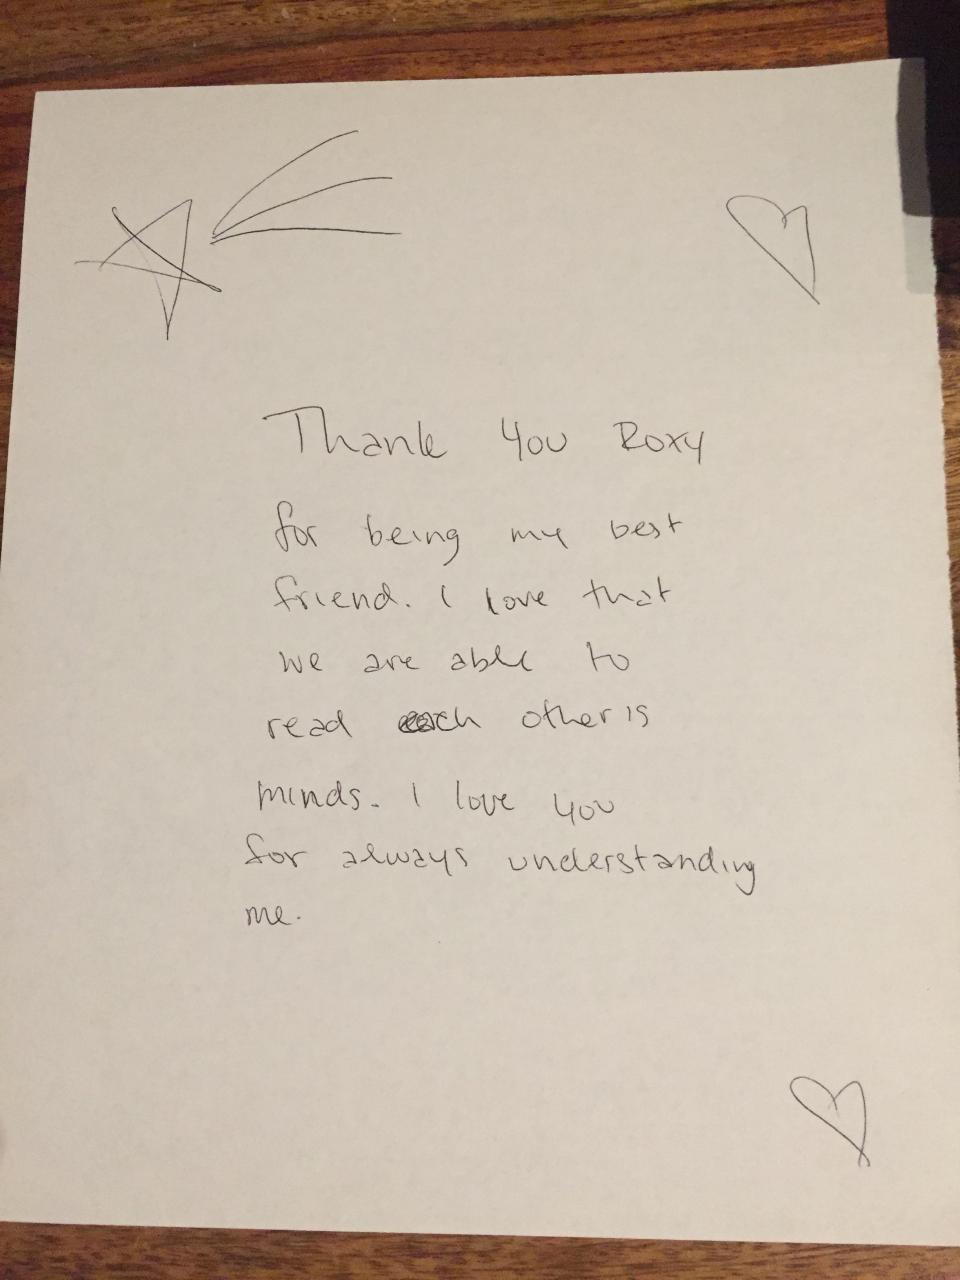 Thank You Roxy
for being my best
friend. I love that
we are able to
read each other's
minds. I love you
for always understanding
me.